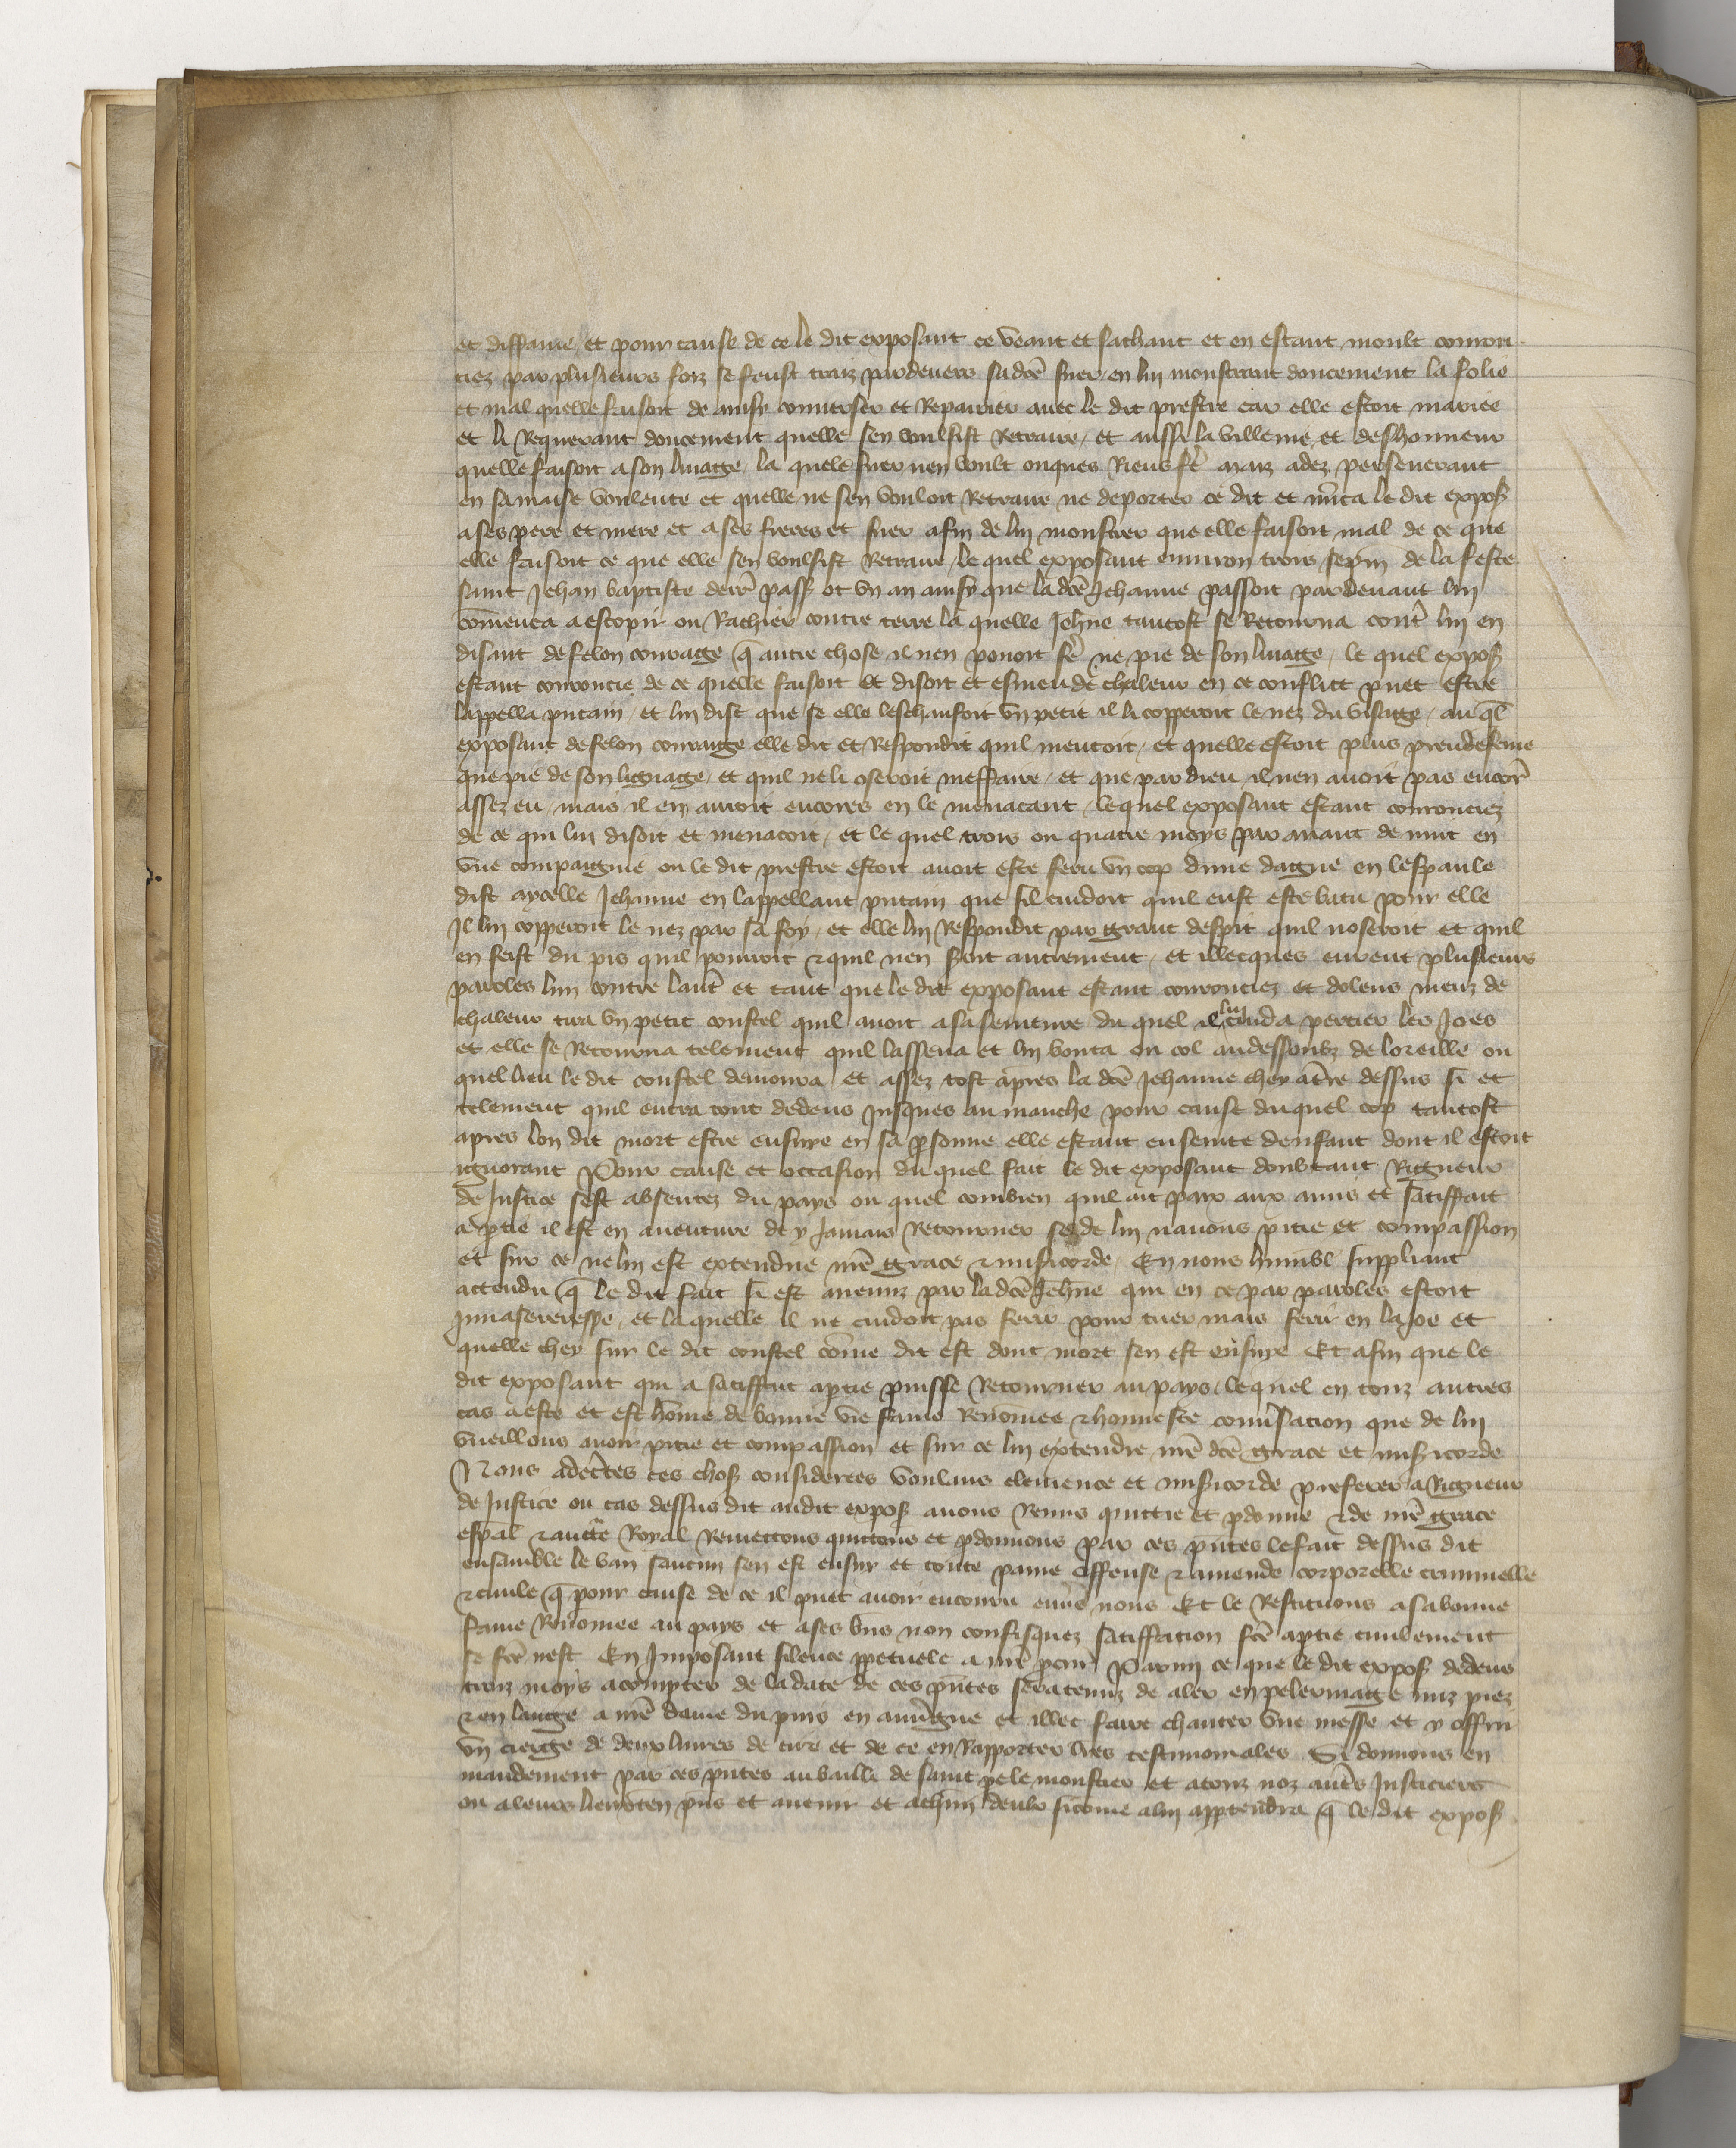 et diffamé et pour cause de ce le dit exposant ce veant et sachant et en estant moult corrou
ciez par plusieurs foiz se feust traiz pardevers sa dcē suer en lui monstrant doucement la folie
et mal quelle faisoit de ainsy converser et Repairier avec le dit prestre car elle estoit mariee
et li Requerant doucement quelle sen voulsist Retraire et aussi la villenie et deshonneur
quelle faisoit a son linatge la quele suer nen voult onques Riens fē maiz adez perseverant
en sa mause voulente et quelle ne sen vouloit Retraire ne deporter ce dit et nūca le dit expoſ
a ses pere et mere et a ses freres et suer afin de lui monstrer que elle faisoit mal de ce que
elle faisoit et que elle sen voulsist Retraire le quel exposant environ trois sepm de la feste
saint Jehan baptiste derr̄ passſ ot vn an ainsy que la dcē Jehanne passoit pardevant lui
cōmenca a escopir ou Rachier contre terre la quelle Jehn̄e tantost se Retourna cont̄ lui en
disant de felon couratge q̄ autre chose il nen pouoit fē ne pie de son linatge le quel expoſ
estant corroucie de ce quelle faisoit et disoit et esmeu de chaleur en ce conflict puet estre
lappella putain et lui dist que se elle leschaufoit vn petit il li copperoit le nez du visatge au ql̄
exposant de felon couratge elle dit et Respondit quil mentoit et quelle estoit plus preudefeme
que pié de son lignatge et quil ne li oseroit meffaire et que par dieu il nen avoit pas encor̄
assez eu mais il en auroit encores en le menacant lequel exposant estant corrouciez
de ce qui lui disoit et menacoit et le quel trois ou quatre moys par avant de nuit en
vne compaignie ou le dit prestre estoit avoit este feru vn cop dune dague en lespaule
dist aycelle Jehanne en lappellant putain que sil cuidoit quil eust este batu pour elle
Il lui copperoit le nez par sa foy et elle lui Respondit par grant despit quil noseroit et quil
en feist du pis quil pourroit ⁊ quil nen seroit autrement et illecques eurent plusieurs
paroles lun contre laut̄ et tant que le dit exposant estant corrouciez et dolens meuz de
chaleur tira vn petit coustel quil avoit a sa seinture du quel il lui cuida percier les Joes
et elle se Retourna telement quil lassena et lui bouta ou col audessoubz de loreille ou
quel lieu le dit coustel demoura et assez tost apres la dcē Jehanne chey at̄re dessus li et
telement quil entra tout dedens Jusques au manche pour cause duquel cop tantost
apres lon dit mort estre ensuye en sa ꝑsonne elle estant enseinte denfant dont il estoit
ignorant Pour cause et occasion du quel fait le dit exposant doubtant Rigueur
de Justice sest absentez du pays ou quel combien quil ait paix aux amis et satisffait
a ꝑtie il est en aventure de y Jamais Retourner se de lui navons pitie et compassion
et sur ce ne lui est extendue nr̄e grace ⁊ misicorde En nous humbl̄ suppliant
attendu q̄ le dit fait li est avenuz par la dcē Jehn̄e qui en ce par paroles estoit
Invaseresse et la quelle il ne cuidoit pas ferir pour tuer mais ferir en la Joe et
quelle chey sur le dit coustel cōme dit est dont mort sen est ensuye Et afin que le
dit exposant qui a satisffait aꝑtie puisse Retourner au pays lequel en touz autres
cas a este et est hōme de bonne vie fame Renōmee ⁊ honneste conv̄sacion que de lui
vueillons avoir pitie et compassion et sur ce lui extendre nr̄e dcē grace et misicorde
Nous adecērtes ces choſ considerees voulans clemence et misicorde preferer a Rigueur
de Justice ou cas dessus dit audit expoſ avons Remis quittie et ꝑdonne ⁊ de nr̄e grace
esp̄al ⁊ auctē Royal Remettons quittons et ꝑdonnons par ces pn̄tes le fait dessus dit
ensamble le ban saucun sen est ensuy et toute paine offense ⁊ amende corporelle criminelle
⁊ civile q̄ pour cause de ce il puet avoir encouru env̄s nous Et le Restituons a sa bonne
fame Renōmee au pays et a ses bn̄s non confisquez satisffacion fcē aꝑtie civilement
se fcē nest En Imposant silence ꝑpetuele a nr̄e ꝓcur̄ Parmi ce que le dit expoſ dedens
troiz moys acompter de la date de ces pn̄tes sera tenuz de aler en pelerinatge nuz piez
⁊ en lange a nr̄e dame du puis en auv̄gne et illec faire chanter vne messe et y offrir
vn cierge de deux livres de cire et de ce en Rapporter lr̄es testimoniales Si donnons en
mandement par ces pn̄tes au bailli de saint pe le monstier et a touz noz aut̄s Justiciers
ou a leurs lieuxten pn̄s et avenir et a chūn deulx sicome a lui apptendra q̄ le dit expoſ